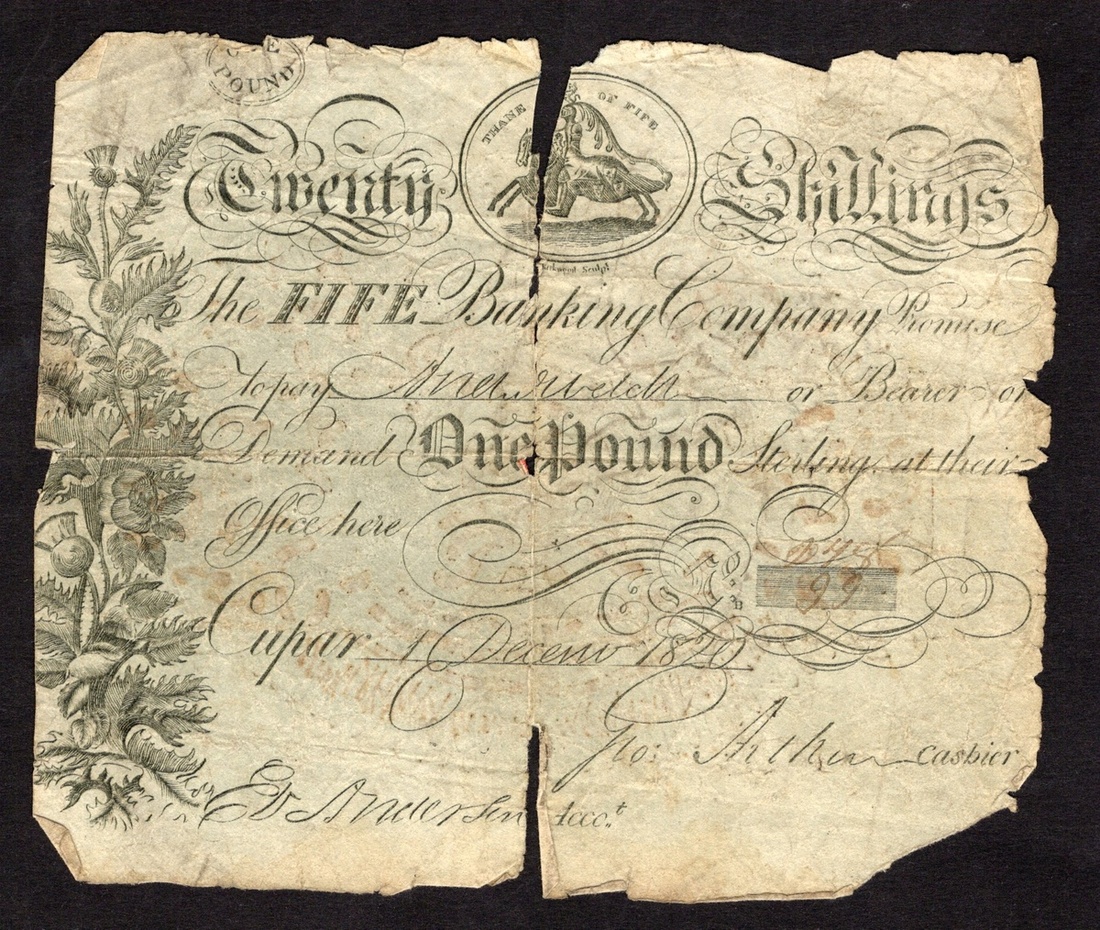 POUND
THANE OF FIFE
Twenty Shillings
Kirkwood Sculpt
The FIFE Banking Company Promise
To pay And. Welch or Bearer on
Demand One Pound Sterling at their
Office here
Cupar 1 Decemr 1820
Geo: Aitken Cashier
Ed Anderson Acco.t